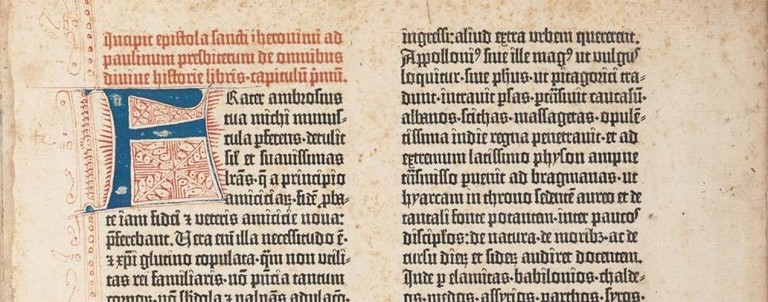 Incipit epistola sancti iheronimi ad
paulinum presbiterum de omnibus
divine historie libris· capitulū p̄mū.
FRater ambrosius
tua michi munus-
cula ꝑferens· detulit
sil̄ et suavissimas
lr̄as· q̄ a principio
amiciciaꝝ· fidē ꝓba-
te iam fidei ⁊ veteris amicicie nova:
p̄ferebant. Vera eni̅ illa necessitudo ē·
⁊ xp̄i glutino copulata· qm̄ non utili-
tas rei familiaris· nō pn̄cia tantum
corporum· nō subdola ⁊ palpans adulacō·
ingressi: aliud extra urbem quererent.
Appolloniꝰ sive ille magꝰ ut vulgꝰ
loquitur· sive ph̄us· ut pitagorici tra-
dunt· intravit ꝑsas· ꝑtrāsivit caucasū·
albanos· scithas· massagetas· opulē-
tissima indie regna penetravit· et ad
extremum latissimo physon amne
trāsmisso ꝑvenit ad bragmanas· ut
hyarcam in throno sedentē aureo et de
tantali fonte potantem· inter paucos
discipl̄os: de natura· de moribꝫ· ac de
cursu dieꝝ et sideꝝ audiret docentem.
Inde ꝑ elamitas· babilonios· chalde-
os· medos· assyrios· parthos· syros·